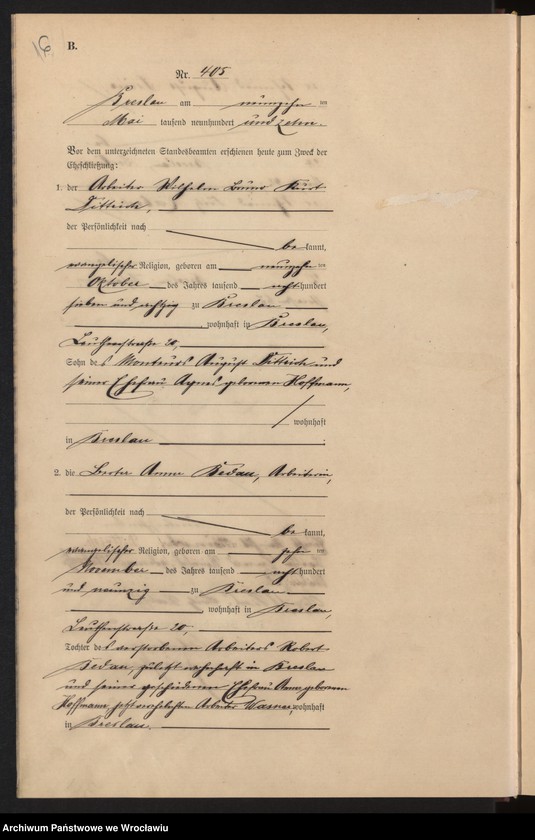 16.
B.
Nr. 405
Breslau am neunzehn ten
Mai tausend neunhundert und zehn.
Vor dem unterzeichneten Standesbeamten erschienen heute zum Zweck der
Eheschließung:
1. der Arbeiter Wilhelm Bruno Kurt
Dittrich,
der Persönlichkeit nach
be kannt,
evangelischer Religion, geboren am neunzehn ten
Oktober des Jahres tausend acht hundert
sieben und achtzig zu Breslau
, wohnhaft in Breslau,
Leuthenstraße 20,
Sohn des Monteurs August Dittrich und
seiner Ehefrau Agnes geborenen Hoffmann,
wohnhaft
in Breslau .
2. die Berta Anna Bedau, Arbeiterin,
der Persönlichkeit nach
be kannt,
evangelischer Religion, geboren am zehn ten
November des Jahres tausend acht hundert
und neunzig zu Breslau
, wohnhaft in Breslau,
Leuthenstraße 20,
Tochter des verstorbenen Arbeiters Robert
Bedau, zuletzt wohnhaft in Breslau
und seiner geschiedenen Ehefrau Anna geborenen
Hoffmann, jetzt verehelichten Arbeiter wohnhaft
in Breslau.
Archiwum Państwowe we Wrocławiu